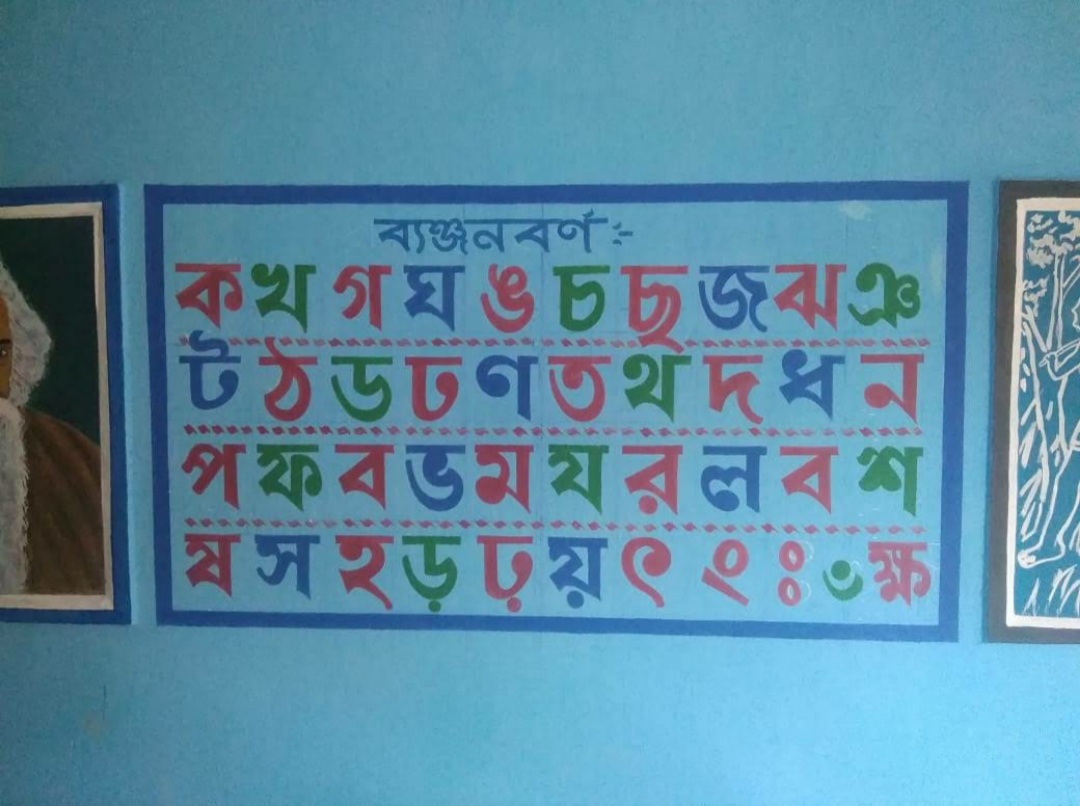 ব্যঞ্জনবর্ণ :-
ক খ গ ঘ ঙ চ ছ জ ঝ ঞ
ট ঠ ড ঢ ণ ত থ দ ধ ন
প ফ ব ভ ম য র ল ব শ
ষ স হ ড় ঢ় য় ৎ ং ঃ ঁ ক্ষ